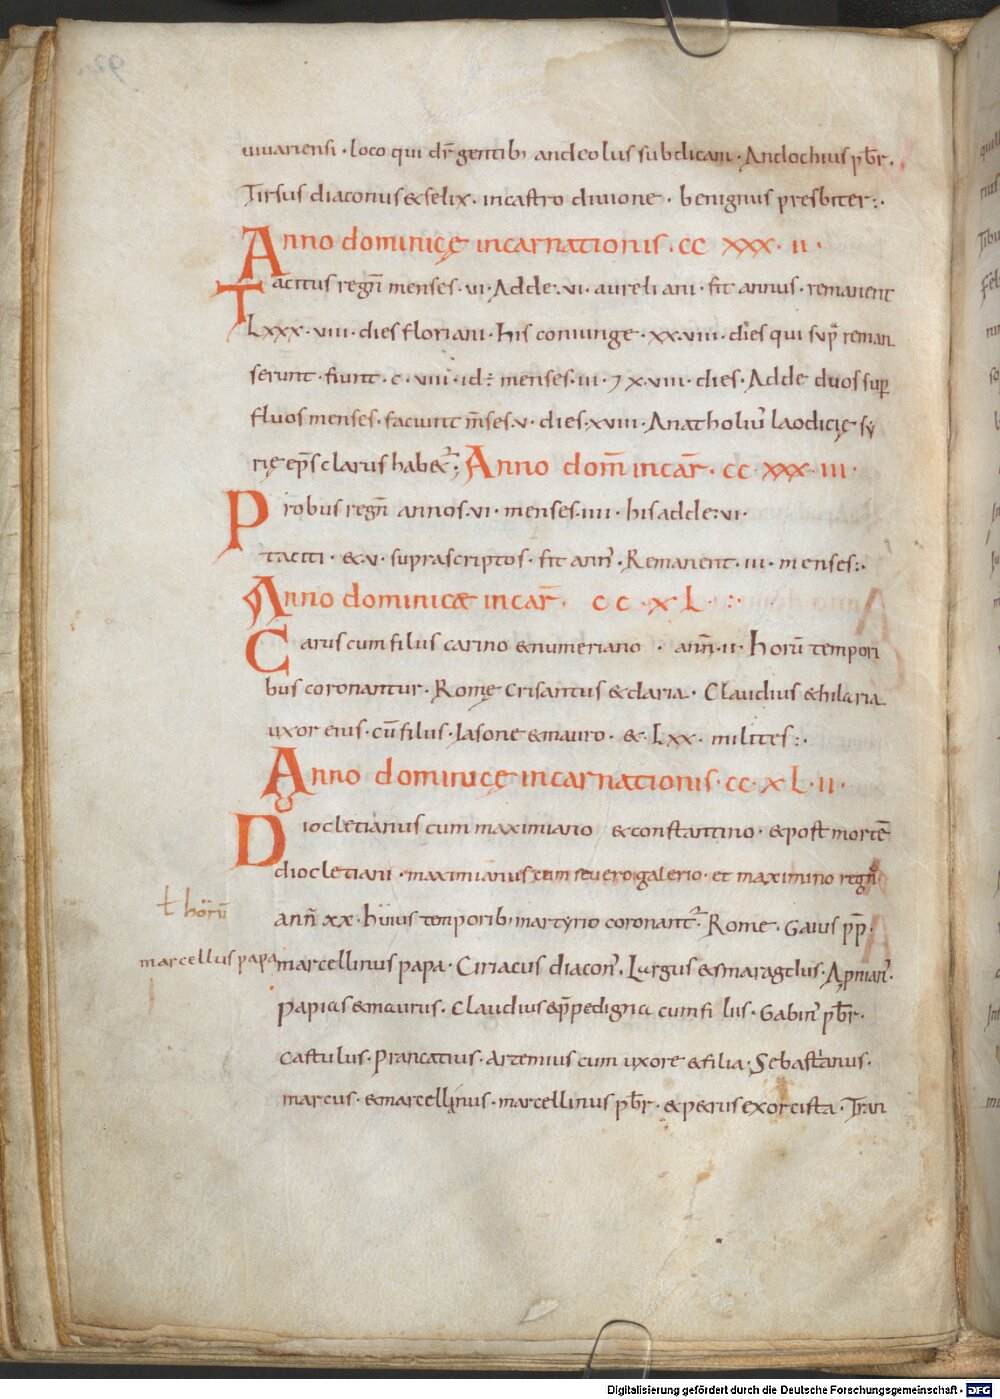 uiuariensi · loco qui dr̄ gentib; andeolus subdicañ · Andochius pb̄r.
Tirsus diaconus & felix · in castro diuione · benignus presbiter:·
Anno dominicę incarnationis · cc xxx · ii ·
Tacitus regn̄ menses · vi · Adde · vi · aureliani · fit annus · remanent
Lxxx · viii · dies floriani · his coniunge · xx · viii · dies qui sup̄ reman
serunt · fiunt · c · viii · id · menses · iii · ⁊ x · viii · dies · Adde duos sup
fluos menses · faciunt m̄ses · v · dies · xviii · Anatholiū laodicię sy
rię ep̄s clarus hab&ur; Anno dom̄ incar̄ · cc xxx · iii ·
Probus regn̄ annos · vi · menses · iiii · his adde · vi ·
taciti · & · v · suprascriptos · fit ann̄ · Remanent · iii · menses:·
Anno dominicæ incar̄ · c c · x L · :·
Carus cum filus carino & numeriano · ann̄ · ii · horū tempori
bus coronantur · Romę crisantus & daria · Claudius & hilaria
uxor eius · cū filus · Iasone & mauro · & · Lxx · milites:·
Anno dominicę incarnationis · cc · x L · ii ·
Diocletianus cum maximiano & constantino · & post mortē
diocletiani · maximianus cum seuero galerio · et maximino regn̄
ł horū
ann̄ xx · huius temporib; martyrio coronant̄ · Rome · Gaius pp̄ ·
marcellus papa
marcellinus papa · Ciriacus diacon̄ · Largus & smaragdus · Apnian̄ ·
papias & maurus · Claudius & p̄pedigna cum fi lus · Gabin̄ pb̄r ·
castulus · prancatius · artemius cum uxore & filia · Sebastianus ·
marcus · & marcellinus · marcellinus pb̄r · & p&rus exorcista · Tran
Digitalisierung gefördert durch die Deutsche Forschungsgemeinschaft - DFG